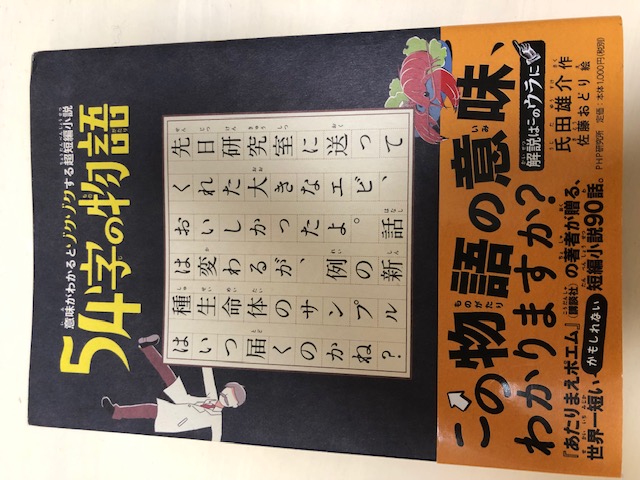 意味がわかるとゾクゾクする超短編小説
54字の物語
先日研究室に送って
くれた大きなエビ、
おいしかったよ。話
は変わるが、例の新
種生命体のサンプル
はいつ届くのかね?
この物語の意味、
わかりますか?
解説はこのウラに
氏田雄介 作
佐藤おどり 絵
PHP研究所 定価:本体1,000円(税別)
『あたりまえポエム』(講談社)の著者が贈る、
世界一短いかもしれない短編小説90話。